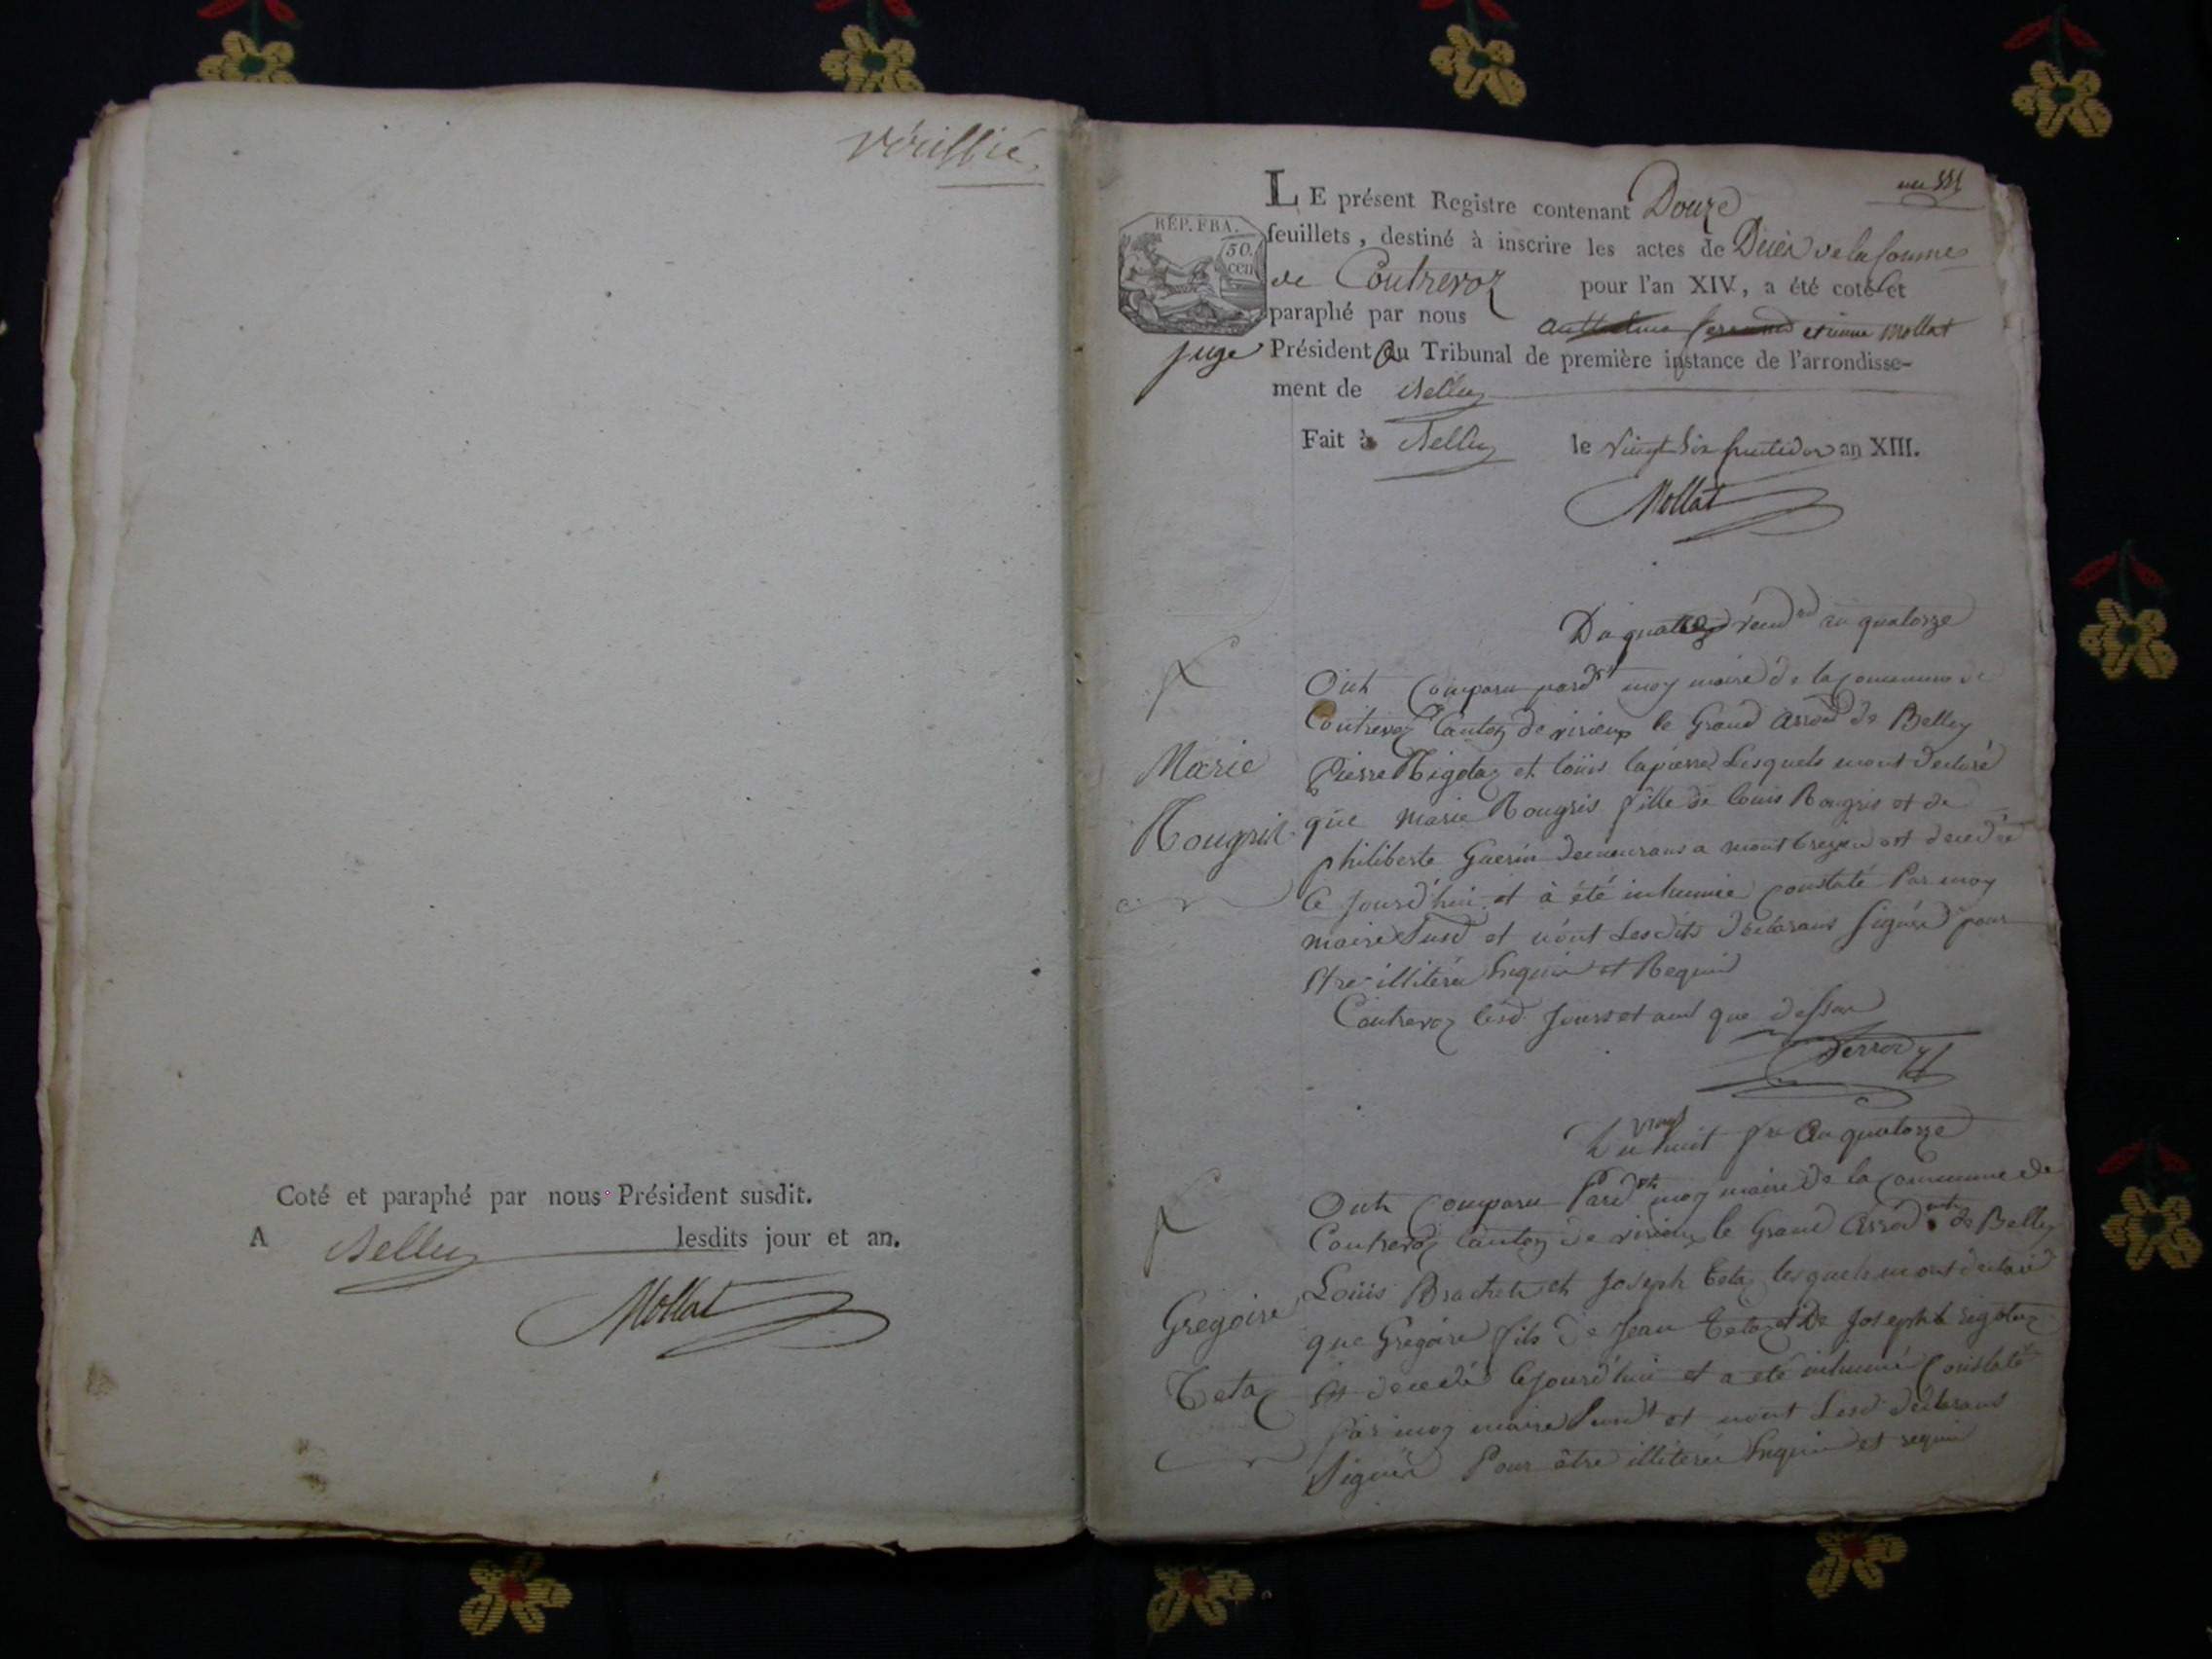 Vériffié.
Coté et paraphé par nous Président susdit.
A Belley lesdits jour et an.
Mollat
LE présent Registre contenant Douze
feuillets, destiné à inscrire les actes de Décès de la Comne
de Contrevoz pour l'an XIV, a été coté et
paraphé par nous etienne Mollat
juge Président au Tribunal de première instance de l'arrondisse-
ment de Belley
Fait à Belley le vingt six fructidor an XIII.
Mollat
RÉP. FRA.
50.
cen
Du quatre vend an quatorze
Ont Comparu pardt moy maire de la commune de
Contrevoz Canton de virieux le Grand arrond de Belley
Pierre Rigolaz et louis lapierre Lesquels mont déclaré
que marie Rougris fille de louis Rougris et de
philiberte Guerin demeurans a est décédée
Ce jourd'hui et à été inhumée constaté Par moy
maire Susd et n'ont Lesdits déclarans signéz pour
être illiteréz Enquis et Requis
Contrevoz lesd. jours et ans que dessus
Marie
Rougris
Du huit an quatorze
Ont Comparu Pardt moy maire de la Commune de
Contrevoz Canton de virieux le Grand arrond de Belley
Louis Brachet et Joseph Tetaz lesquels mont déclaré
que Grégoire fils de Jean Tetaz et De Josephte rigolaz
est décédé Cejourd'hui et a été inhumé Constaté
par moy maire Susdt et n'ont Lesd. déclarans
Signéz Pour être illiteréz Enquis et requis
Gregoire
Tetaz